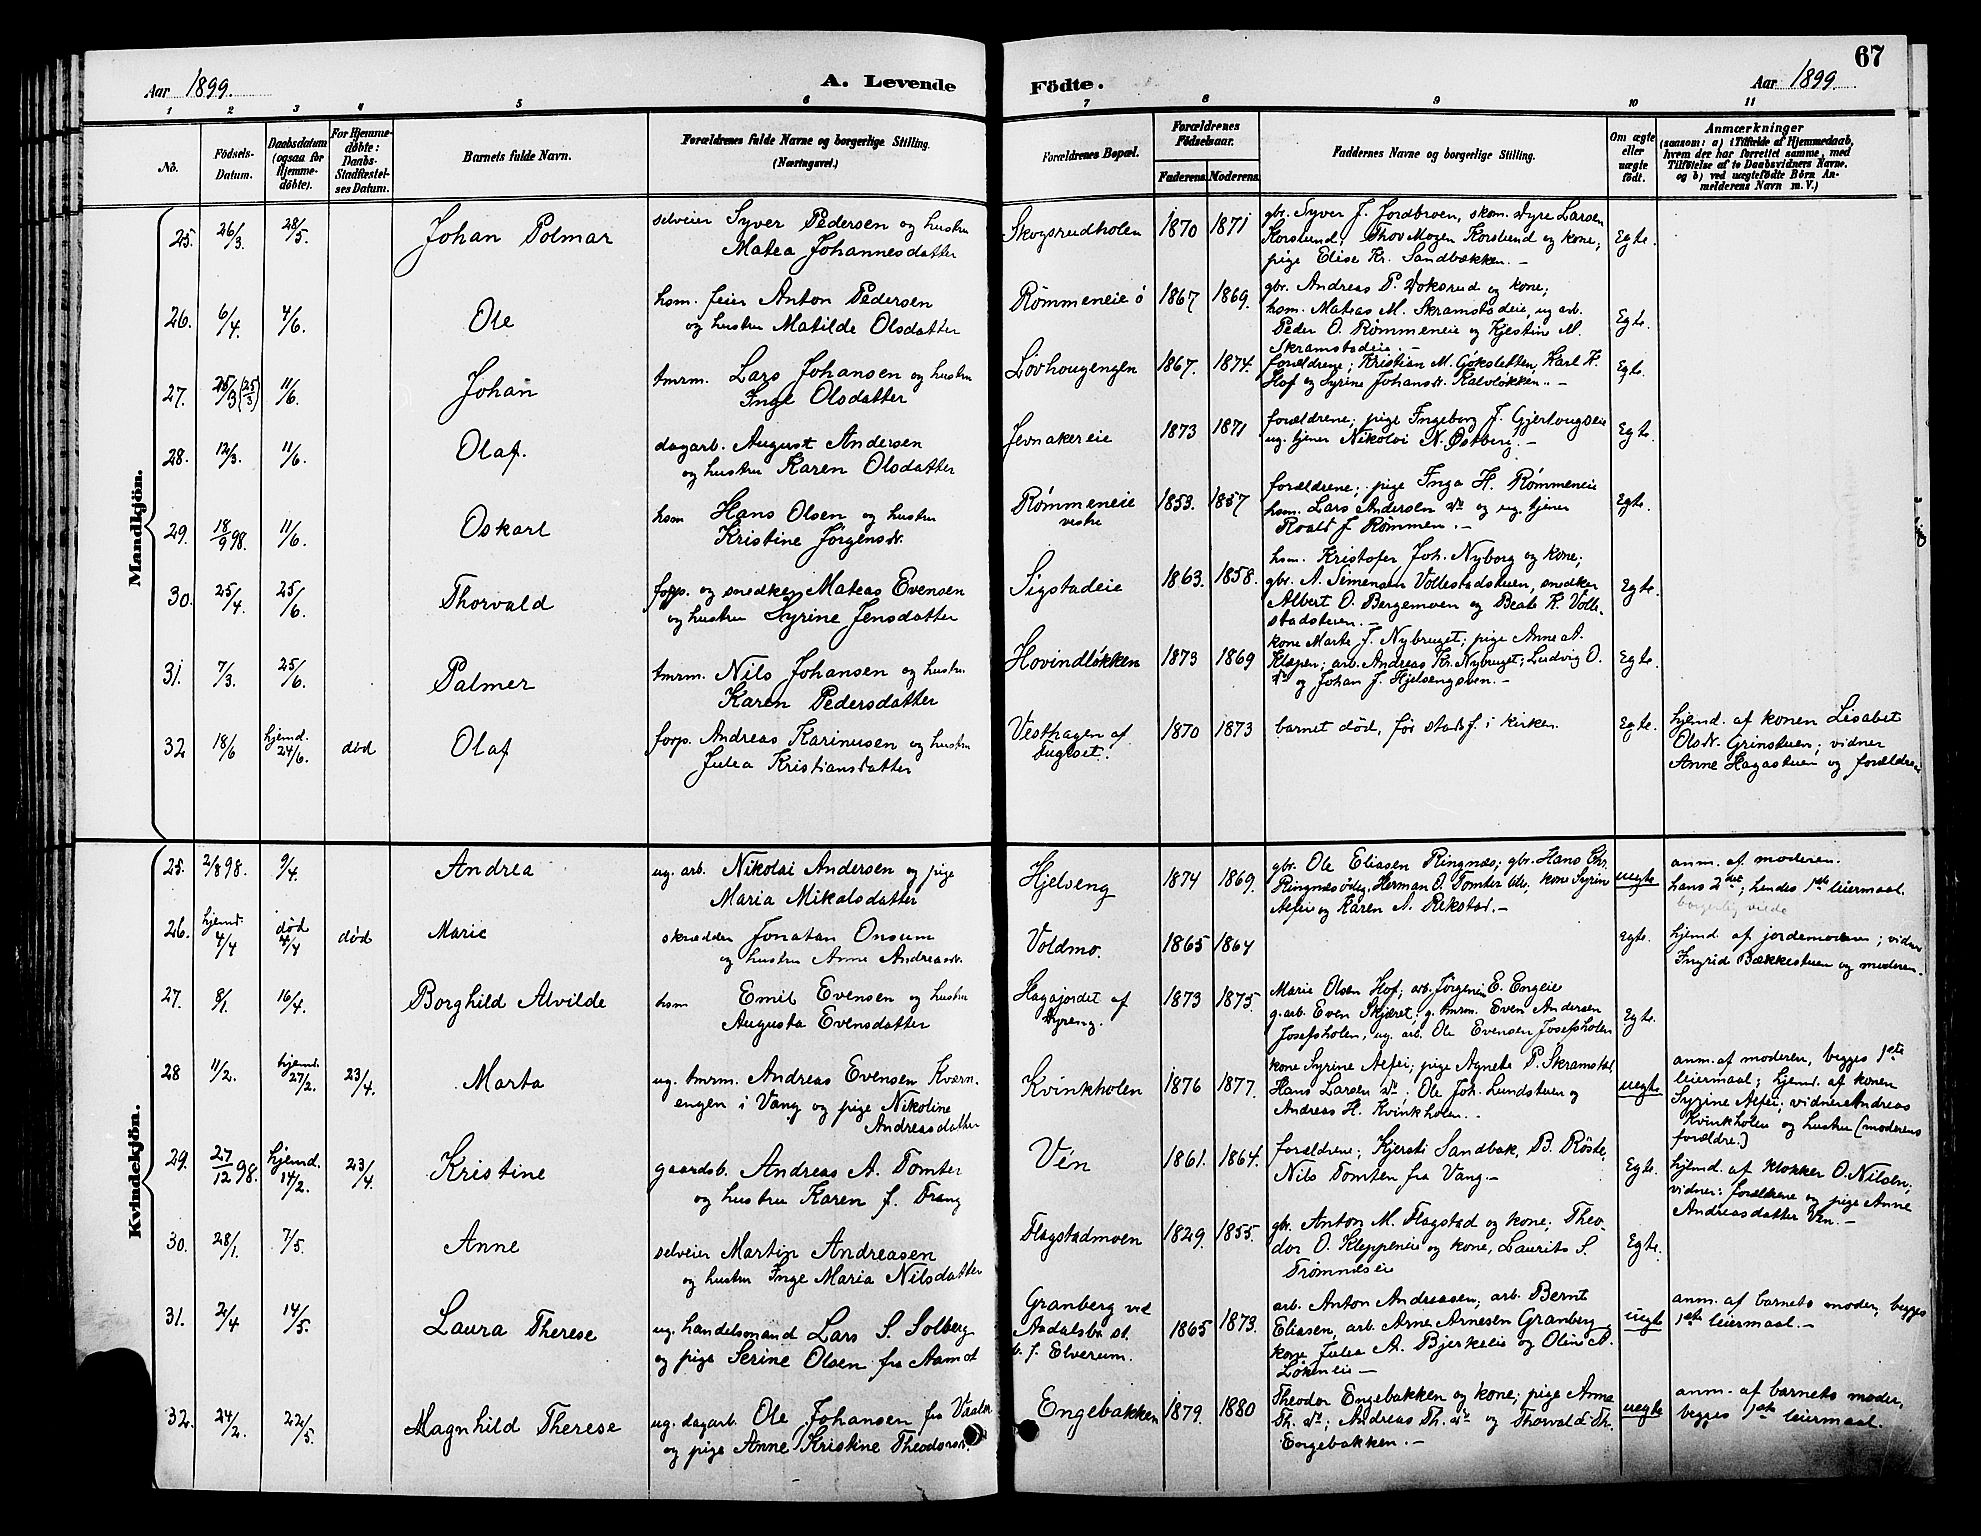 67
Aar 1899.
A. Levende
Födte.
Aar 1899.
1 2 3 4 5 6 7 8 9 10 11
No.
Födsels-
Datum.
Daabsdatum
(ogsaa for
Hjemme-
döbte).
For Hjemme-
döbte:
Daabs-
Stadfæstel-
ses Datum.
Barnets fulde Navn.
Forældrenes fulde Navne og borgerlige Stilling.
(Næringsvei.)
Forældrenes Bopæl.
Forældrenes
Födselsaar.
Faderens. Moderens.
Faddernes Navne og borgerlige Stilling.
Om ægte
eller
uægte
födt.
Anmærkninger
(saasom: a) i Tilfælde af Hjemmedaab,
hvem der har forrettet samme, med
Tilföielse af to Daabsvidners Navne.
og b) ved uægtefödte Börn An-
melderens Navn m. V.)
Mandkjön.
25. 26/3. 28/5. Johan Polmar
selveier Syver Pedersen og hustru
Matea Johannesdatter
Skogsrudholen 1870 1871
gbr. Syver J. Jordbroen, skom. Syre Larsen
Korslund; Thov Mozen Korslund og kone;
pige Elise Kr. Sandbækken. –
Egte.
26. 6/4. 4/6. Ole
hsm. feier Anton Pedersen
og hustru Matilde Olsdatter
Rømmeneie ö 1867 1869.
gbr. Andreas P. Doksrud og kone;
hsm. Mateas M. Skramstadeie, ug arb.
Peder O. Rømmeneie og Kjestine M.
Skramstadeie. –
Egte.
27. 25/3 (25/3) 11/6. Johan
tmrm. Lars Johansen og hustru
Inge Olsdatter
Lövhougengen 1867. 1874.
forældrene; Kristian M. Gökslettten, Karl K.
Hof og Syrine Johansdr. Kalvløkken. –
Egte.
28. 12/3. 11/6. Olaf.
dagarb. August Andersen
og hustru Karen Olsdatter
Jevnakereie 1873 1871
forældrene; pige Ingeborg J. Gjerlougseie
ug. tjener Nikolai N. Østberg. –
Egte.
29. 18/9 98. 11/6. Oskarl
hsm Hans Olsen og hustru
Kristine Jørgensdr.
Rømmeneie
vestre
1853. 1857
forældrene; pige Inga H. Rømmeneie
hsm. Lars Andersen do og ug. tjener
Roald J. Rømmen. –
Egte.
30. 25/4. 25/6. Thorvald
forp. og snedker Mateas Evensen
og hustru Syrine Jensdatter
Sigstadeie 1863. 1858.
hsm. Kristofer Joh. Nyborg og kone;
gbr. A. Simensen Vollestadstuen, snedker
Albert O. Bergemoen og Beate K. Volle-
stadstuen. –
Egte.
31. 7/3. 25/6. Palmer
tmrm. Nils Johansen og hustru
Karen Pedersdatter
Hovindløkken 1873 1869
kone Marte J. Nybruget; pige Anne A.
Klæpen; arb. Andreas Kr. Nybruget; Ludvig O.
do og Johan J. Hjelsengsven. –
Egte.
32 18/6 hjemd.
24/6. död Olaf
forp. Andreas Karinusen og hustru
Julea Kristiansdatter
Vesthagen af
Fuglset.
1870 1873 barnet död, før stadf. i kirken. Egte.
hjemd. af konen Lisabet
Olsdr. Grinstuen; vidner
Anne Hagastuen og forældrene
Kvindekjön.
25. 2/8 98. 9/4. Andrea
ug. arb. Nikolai Andersen og pige
Maria Mikalsdatter
Hjelseng 1874 1869.
gbr. Ole Eliasen Ringnæs; gbr. Hans Chr.
Ringnæsødeg. Herman O. Tomter kone Syrin
Alfeie og Karen A. Rekstad. –
uegte
anm. af moderen.
hans 2det; hendes 1ste leiermaal.
borgerlig viede
26. hjemd.
4/4 död
4/4 död Marie
skrædder Jonatan Onsum
og hustru Anne Andreasdr.
Voldmo. 1865 1864 Egte.
hjemd. af jordemoderen; vidner
Ingrid Bækkestuen og moderen.
27. 8/1. 16/4. Borghild Alvilde
hsm Emil Evensen og hustru
Augusta Evensdatter
Hagajordet af
Dyreng.
1873 1875.
Marie Olsen Hof; arb. Jörgen E. Engeie
g.arb. Even Skjæret; g. tmrm. Even Andersen
Josefsholen, ug. arb. Ole Evensen Josefsholen
Egte.
28 11/2. hjemd.
27/2. 23/4. Marta
ug. tmrm. Andreas Evensen Kværn-
engen i Vang og pige Nikoline
Andreasdatter
Kvinkholen 1876 1877.
kone Syrine Alfei; pige Agnete P. Skramstad,
Hans Larsen do; Ole Joh. Lundstuen og
Andreas H. Kvinkholen. –
uegte
anm. af moderen, begges 1ste
leiermaal; hjemd. af konen
Syrine Alfei; vidner Andreas
Kvinkholen og hustru (moderens
forældre.)
29. 27/12 98. hjemd.
14/2. 23/4. Kristine
gaardb. Andreas A. Tomter
og hustru Karen f. Frang
Vén 1861. 1864.
forældrene; Kjersti Sandbak, B. Röste,
Nils Tomten fra Vang. –
Egte.
hjemd. af klokker O. Nilsen;
vidner: forældrene og pige Anne
Andreasdatter Vén. –
30. 28/1. 7/5. Anne
selveier Martin Andreasen
og hustru Inge Maria Nilsdatter
Flagstadmoen 1829. 1855.
gbr. Anton M. Flagstad og kone; Theo-
dor O. Kleppeneie og kone, Laurits S.
Trømnæseie
Egte.
31. 2/4 14/5. Laura Therese
ug. handelsmand Lars S. Solberg
og pige Serine Olsen fra Aamot
Granberg ved
Aadalsbr. st.
b. f. Elverum.
1865 1873.
arb. Anton Andreasen; arb. Bernt
Eliasen, arb. Arne Arnesen Granberg
kone Julea A. Bjerkeeie og Oline A.
Løkeneie –
uegte
anm. af barnets moder, begges
1ste leiermaal. –
32. 24/2. 22/5. Magnhild Therese
ug. dagarb. Ole Johansen fra Vaaler
og pige Anne Kristine Theodorsdr.
Engebakken 1879. 1880
Theodor Engebakken og kone; pige Anna
Th. do; Andreas Th. do og Thorvald Th.
Engebakken. –
uegte
anm. af barnets moder,
begges 1ste leiermaal.